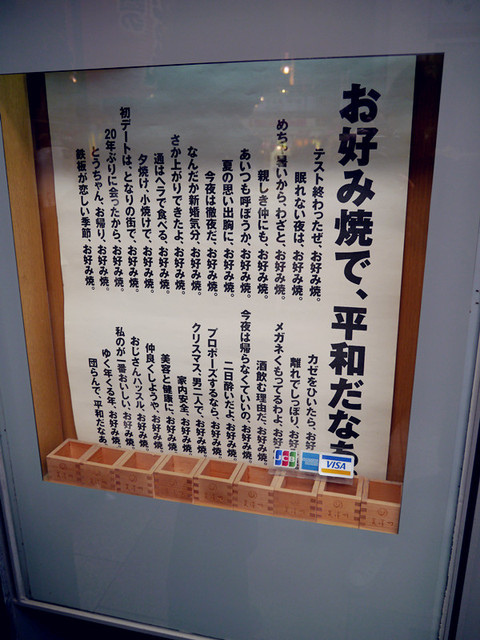 お好み焼で、平和だなあ
テスト終わったぜ、お好み焼。
眠れない夜は、お好み焼。
めちゃ暑いから、わざと、お好み焼。
親しき仲にも、お好み焼。
あいつも呼ぼうか、お好み焼。
夏の思い出胸に、お好み焼。
今夜は徹夜だ、お好み焼。
なんだか新婚気分、お好み焼。
さか上がりできたよ、お好み焼。
通はヘラで食べる、お好み焼。
夕焼け、小焼けで、お好み焼。
初デートは、となりの街で、お好み焼。
20年ぶりに会ったから、お好み焼。
とうちゃん、お帰り、お好み焼。
鉄板が恋しい季節、お好み焼。
カゼをひいたら、お好
離れでしっぽり、お好
メガネくもってるわよ、お好
酒飲む理由だ、お好み焼。
今夜は帰らなくていいの、お好み焼。
二日酔いだよ、お好み焼。
プロポーズするなら、お好み焼。
クリスマス、男二人で、お好み焼。
家内安全、お好み焼。
美容と健康に、お好み焼。
仲良くしようや、お好み焼。
おじさんハッスル、お好み焼。
私のが一番おいしい、お好み焼。
ゆく年くる年、お好み焼。
団らんで、平和だなあ。
JCB
VISA